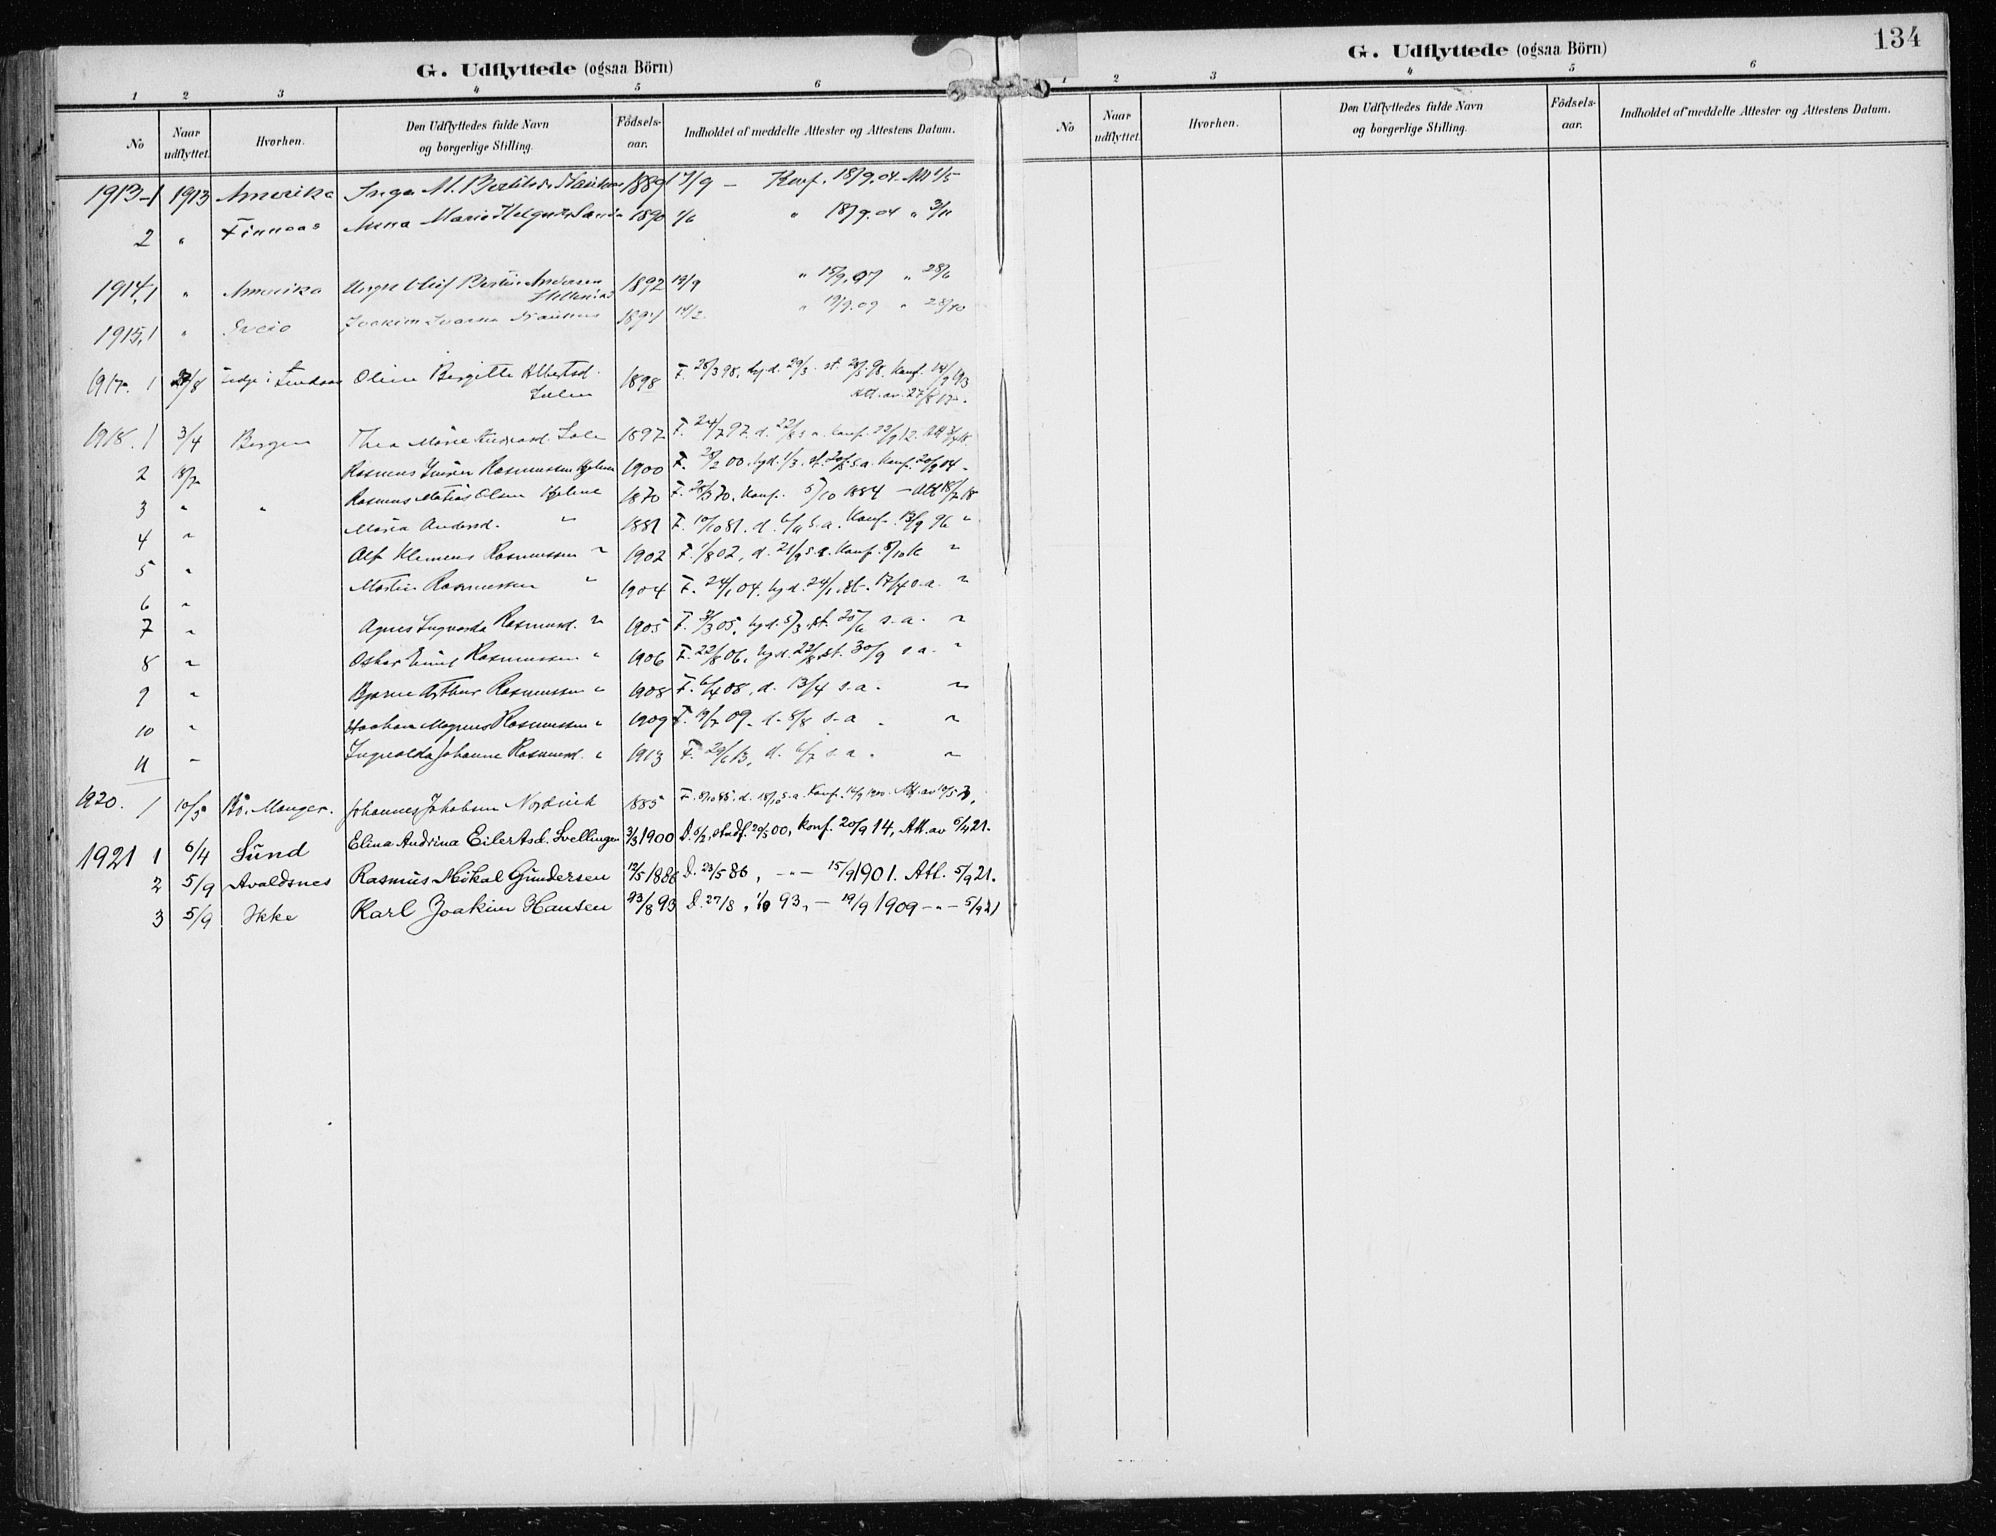 G. Udflyttede (ogsaa Börn)
1 2 3 4 5 6
No Naar udflyttet. Hvorhen. Den Udflyttedes fulde Navn og borgerlige Stilling. Fødsels-aar. Indholdet af meddelte Attester og Attestens Datum.
1913-1 1913 Amerika Inga M. 1889 Konf. 18/9.04 Att
2 " Finnaas Anna Marie 1890 " 18/9.04 " 3/11
1914,1 " Amerika Bertin Andersen 1892 19/9 " 15/9.07 " 28/6
1915,1 " Sveio Joakim 1894 " 19/9.09 " 28/10
1917. 1 27/8 i Oline Birgitte Albertsd. 1898 F. 28/3 98. hjd. 29/3. st. Konf.
Att. av. 27/8 17.
1918. 1 3/4 Bergen Thea Marie 1897 F. 24/7 97. d. 22/8 s.a. Konf. 22/9 12. Att
2 18/7 Rasmus Rasmussen Hjelme 1900 F. 28/2 00. hjd. 1/3. st. s.a. Konf. 20/9 14 -
3 " " Rasmus Matias Olsen Hjelme 1870 F. 28/3 70. Konf. 5/10 1884 - Att 18/7 18
4 " Maria Andersd. " 1881 F. 10/10 81. d. 6/11 s.a. Konf. 13/9 96 "
5 " Alf Klemens Rasmussen " 1902 F. 1/8 02, d. 21/9 s.a. Konf. 8/10 16 "
6 " Martin Rasmussen " 1904 F. 24/1 04. hjd. 24/1. st. 17/4 s.a. "
7 " Agnes Ingvarda Rasmusd. " 1905 F. 3/3 05, hjd. 5/3. st. 25/6 s.a. "
8 " Oskar Emil Rasmussen " 1906 F. 22/8 06, hjd. 22/8. st. 30/9 s.a. "
9 " Bjarne Arthur Rasmussen " 1908 F. 6/4 08, d. 13/4 s.a. "
10 " Haakon Magnus Rasmussen " 1909 F. 19/7 09. d. 8/8 s.a. "
11 " Ingvalda Johanne Rasmusd. " 1913 F. 29/6 13, d. 6/7 s.a. "
1920. 1 10/5 Bö. Manger. Johannes Jakobsen Nordvik 1885 F. 8/10 85. d. 18/10 s.a. Konf. 14/9 1900. Att. av 10/5 20,
1921 1 6/4 Sünd Elina Andrina Eilertsd. Svellingen 3/3 1900 D. 5/2, stadf. 20/5 00, Konf. 20/9 14, Att. av 6/4 21.
2 5/9 Avaldsnes Rasmüs Mikal Gündersen 12/5 1886 D. 23/5 86, -"- 15/9 1901. Att. 5/9 21.
3 5/9 Ikke Karl Joakim Hansen 23/8 93 D. 27/8, 1/10 93, - 19/9 1909 -"- 5/9 21
134
G. Udflyttede (ogsaa Börn)
1 2 3 4 5 6
No Naar udflyttet. Hvorhen. Den Udflyttedes fulde Navn og borgerlige Stilling. Fødsels-aar. Indholdet af meddelte Attester og Attestens Datum.